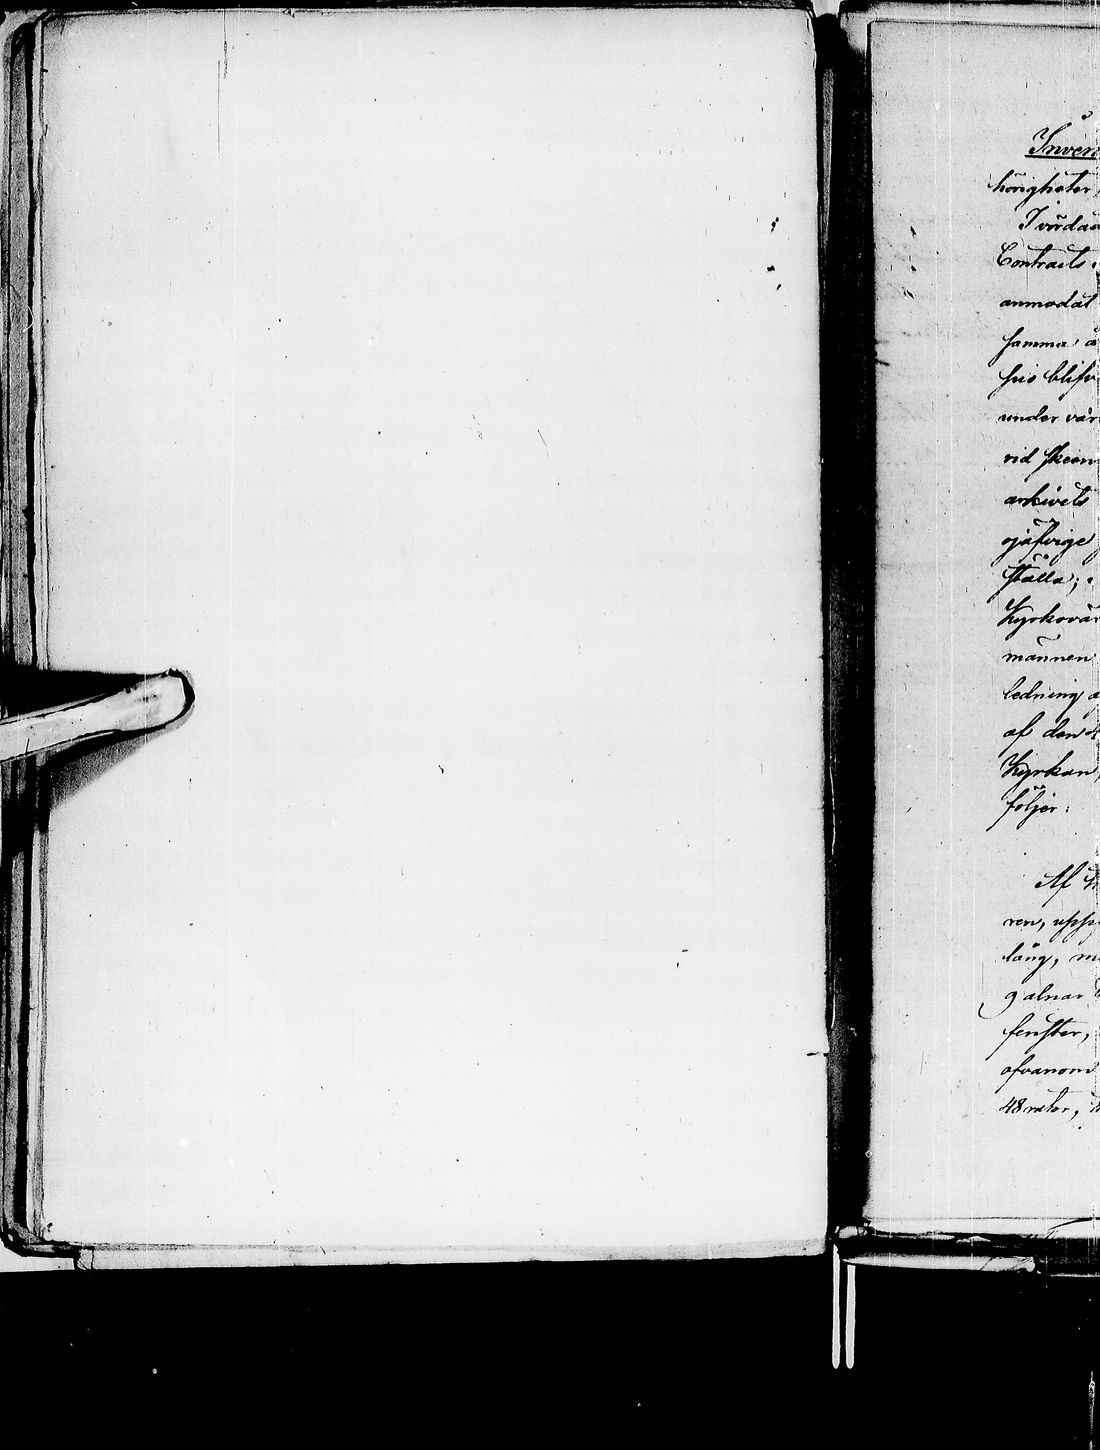 Inven
hörigheter
I vörda
Contracts
anmodat
samma
hus blifv
under vår
vid
arkivets
ojäfvige
ställa;
Kyrkovär
männen
ledning a
af den
Kyrkan,
följer:
Af
ren, upp
lång, m
9 alnar
fenster,
ofvanom
48 rutor,